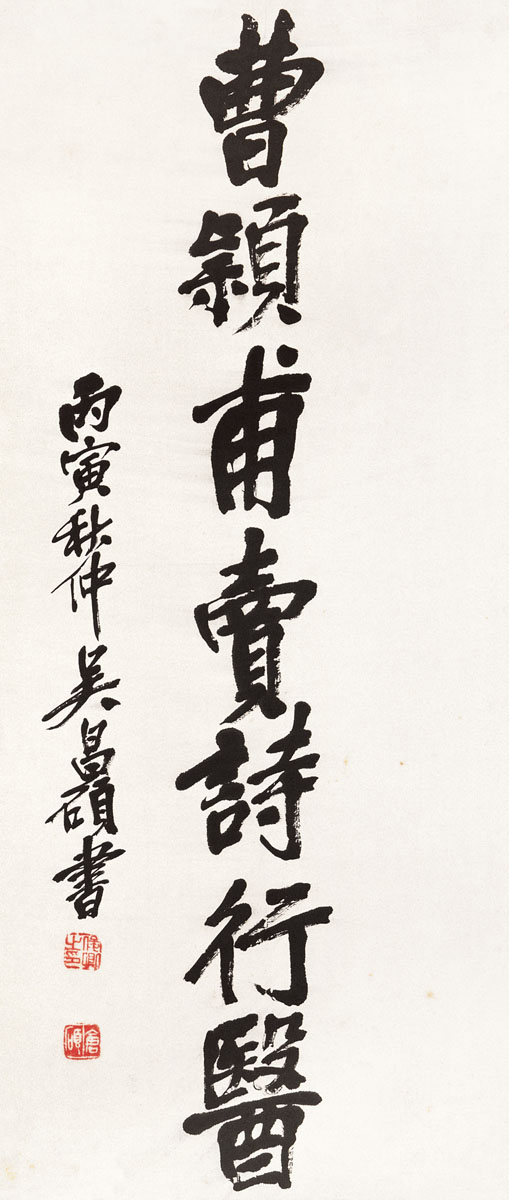 曹穎甫賣詩行醫
丙寅秋仲吳昌碩書
俊卿之印
倉碩